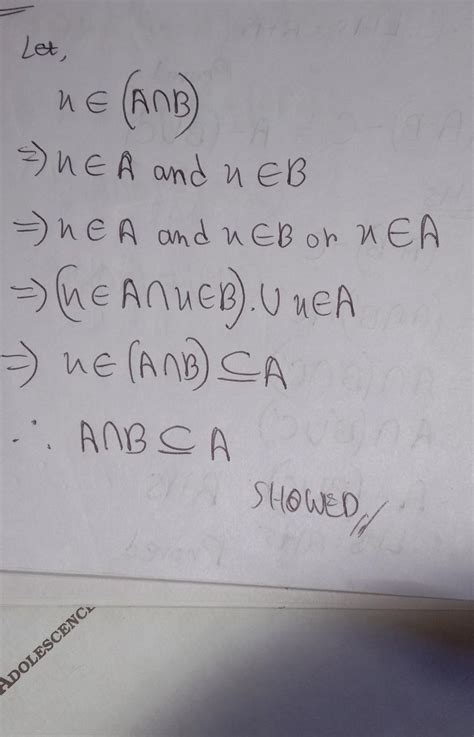 Let,
x ∈ (A∩B)
⇒ x ∈ A and x ∈ B
⇒ x ∈ A and x ∈ B or x ∈ A
⇒ (x ∈ A ∩ x ∈ B). ∪ x ∈ A
⇒ x ∈ (A∩B) ⊆ A
∴ A∩B ⊆ A
SHOWED //
ADOLESCENC